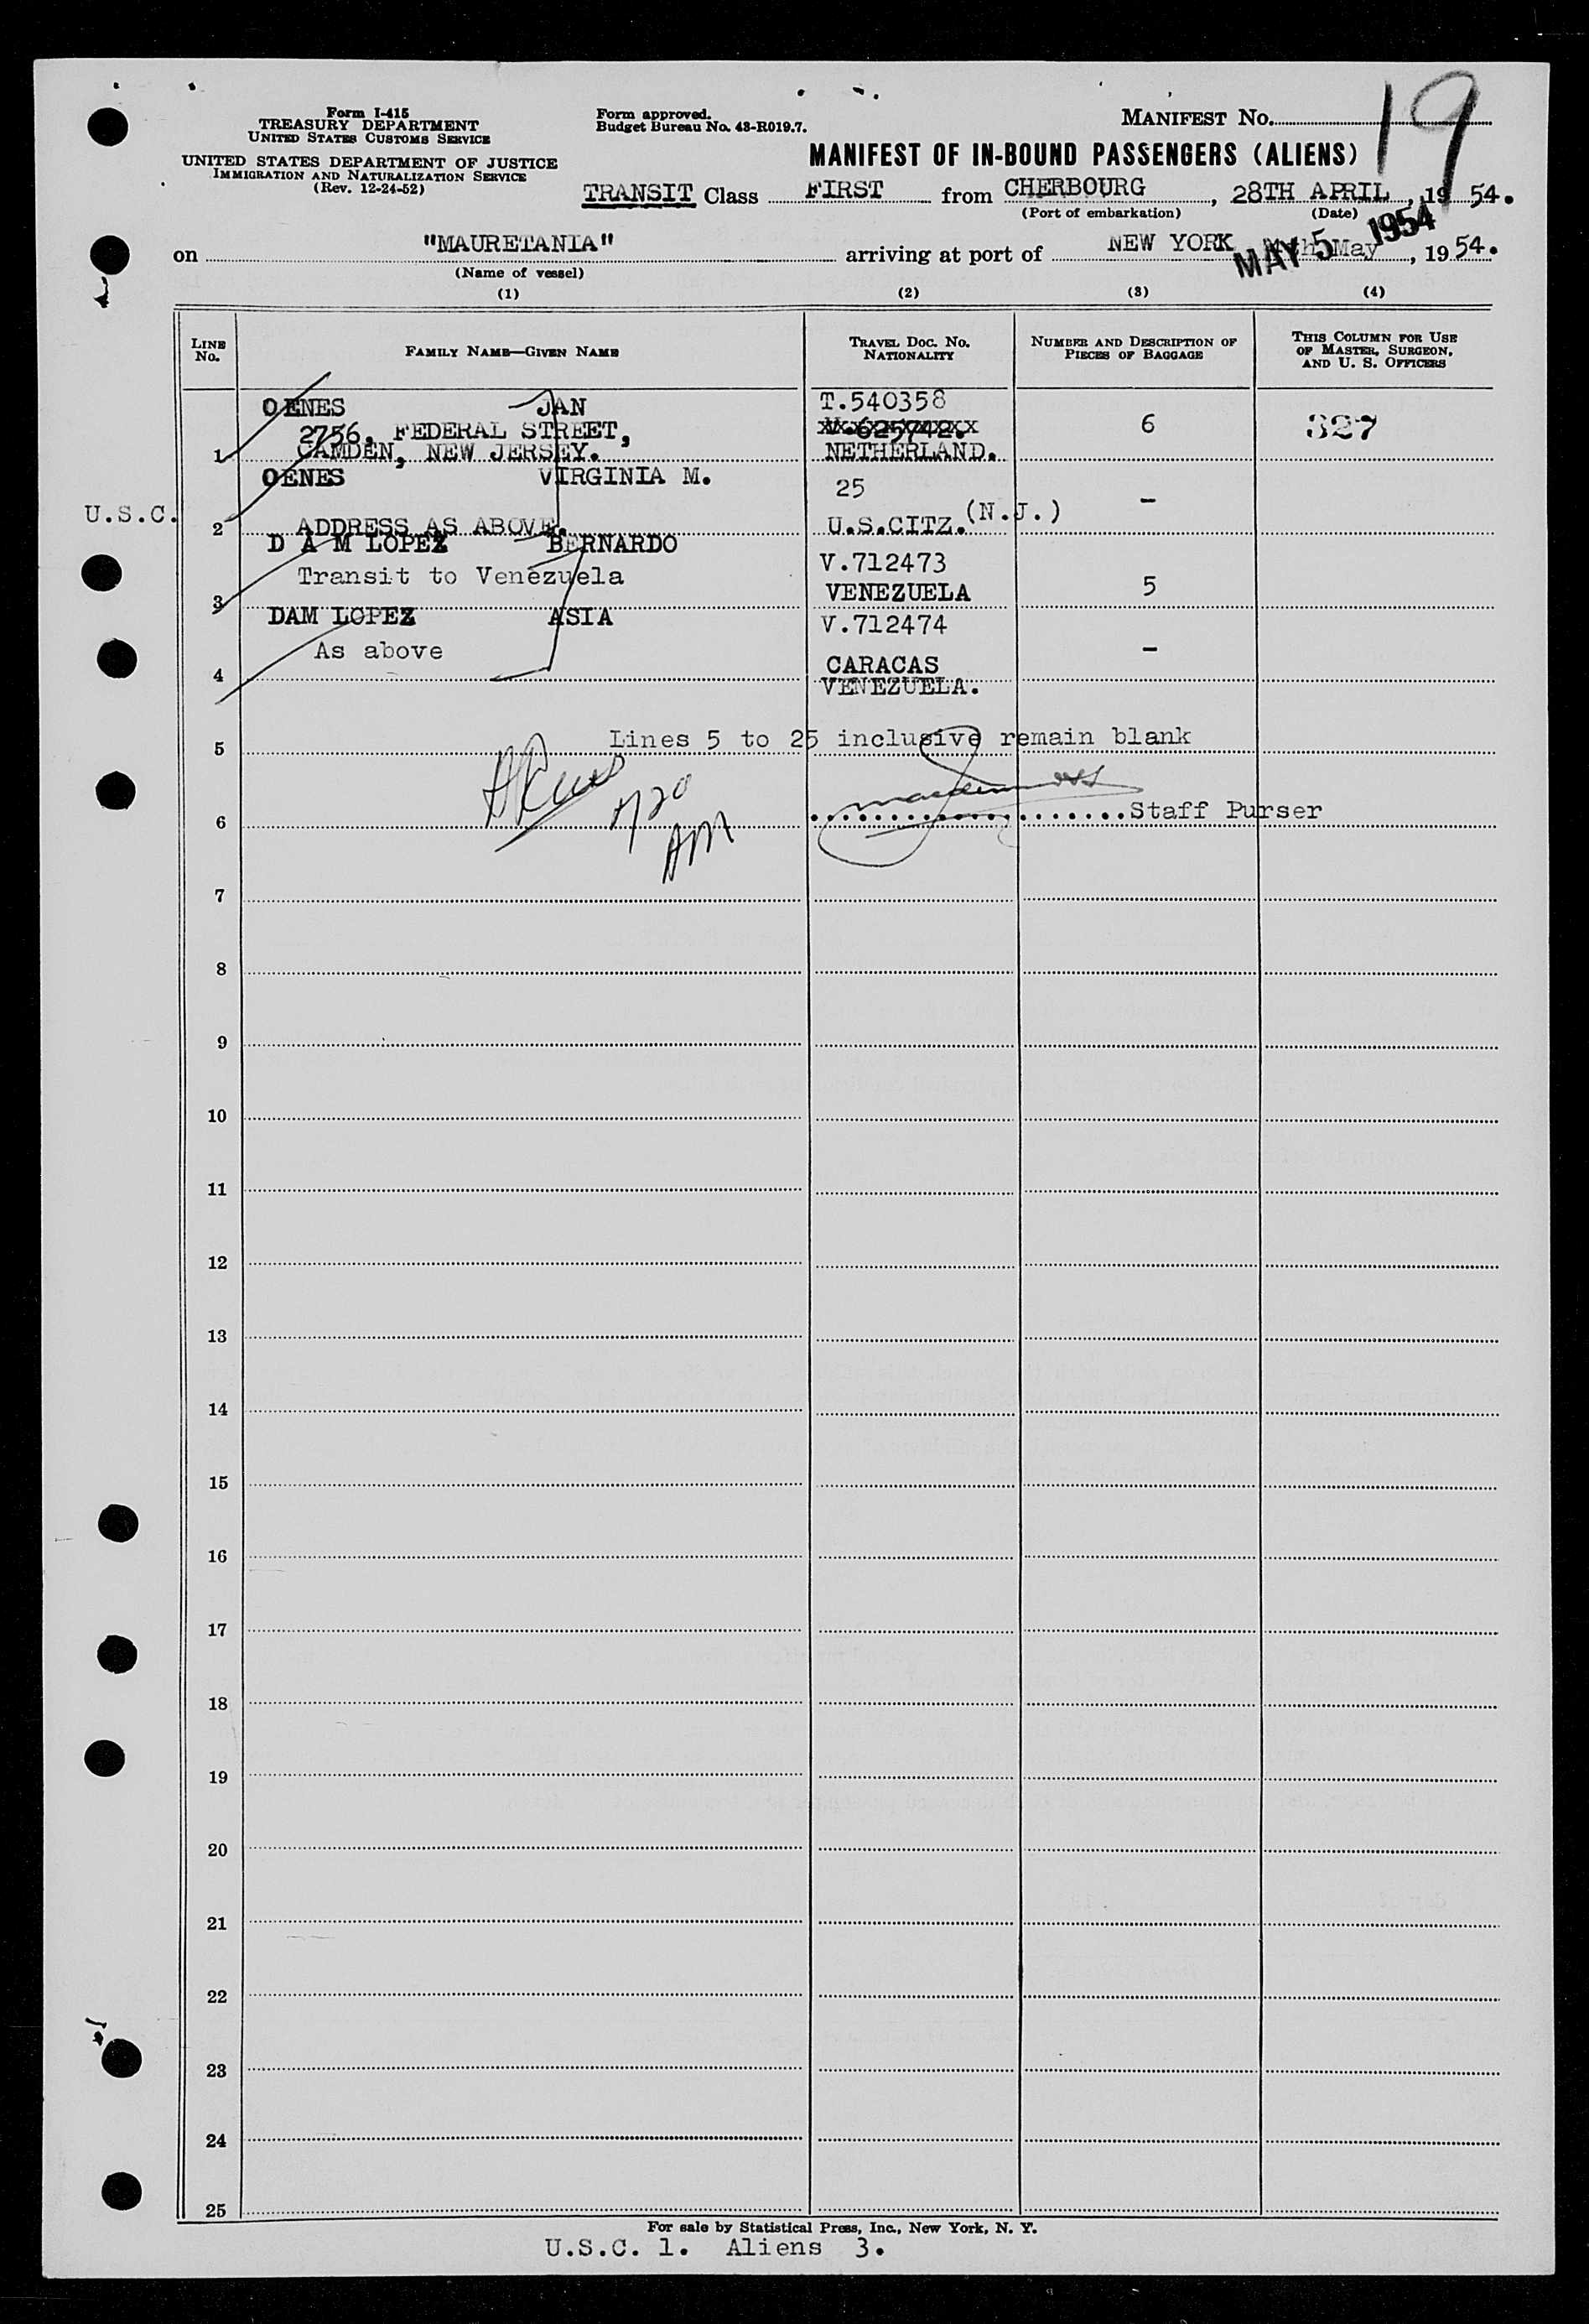 Form I-415
TREASURY DEPARTMENT
UNITED STATES CUSTOMS SERVICE
UNITED STATES DEPARTMENT OF JUSTICE
IMMIGRATION AND NATURALIZATION SERVICE
(Rev. 12-24-52)
Form approved.
Budget Bureau No. 43-R019.7.
MANIFEST NO. 19
MANIFEST OF IN-BOUND PASSENGERS (ALIENS)
TRANSIT Class FIRST from CHERBOURG, 28TH APRIL, 19 54.
(Port of embarkation) (Date)
on "MAURETANIA" arriving at port of NEW YORK May, 19 54.
MAY 5 1954
(Name of vessel)
(1) (2) (3) (4)
LINE No. FAMILY NAME—GIVEN NAME TRAVEL DOC. NO. NATIONALITY NUMBER AND DESCRIPTION OF PIECES OF BAGGAGE THIS COLUMN FOR USE OF MASTER, SURGEON, AND U. S. OFFICERS
OENES JAN T.540358
2756, FEDERAL STREET, V.625742. 6 327
1 CAMDEN, NEW JERSEY. NETHERLAND.
OENES VIRGINIA M. 25 -
U.S.C. 2 ADDRESS AS ABOVE. U.S.CITZ. (N.J.)
D A M LOPEZ BERNARDO V.712473
Transit to Venezuela
3 VENEZUELA 5
DAM LOPEZ ASIA V.712474
As above -
4 CARACAS
VENEZUELA.
5 Lines 5 to 25 inclusive remain blank
6 Staff Purser
7/20
AM
7
8
9
10
11
12
13
14
15
16
17
18
19
20
21
22
23
24
25
For sale by Statistical Press, Inc., New York, N. Y.
U.S.C. 1. Aliens 3.